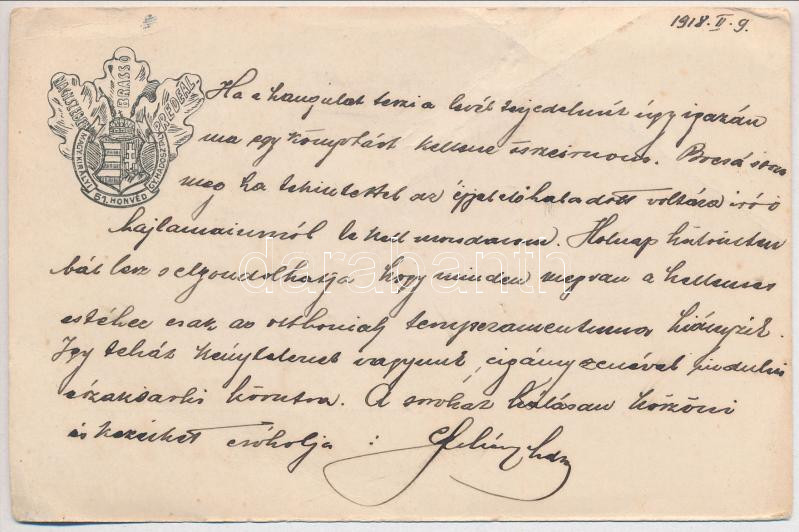 1918. II. 9.
NAGYSZEBEN BRASSÓ PREDEAL
MAGY. KIRÁLYI 61. HONVÉD GY. HADOSZT. PKSÁG
Ha a hangulat teszi a levél terjedelmét úgy igazán
ma egy könyvtárt kellene összeirnom. Bocsásson
meg ha tekintettel az éjjel előhaladott voltára irói
hajlamaimról le kell mondanom. Holnap
bál lesz s elgondolhatja hogy minden megvan a kellemes
estéhez csak az otthoniak temperamentuma hiányzik.
Igy tehát kénytelenek vagyunk, cigányzenével indulni
északsarki körutra. A sorokat hálásan köszöni
és kezeiket csókolja :
darabanth